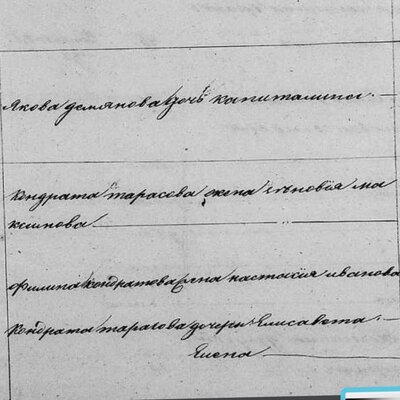 Якова демянова дочь капиталина
Кондрата тарасова жена ма
ксимова
Филипа кондратова жена настасия иванова
Кондрата тарасова дочери Елисавета
Елена